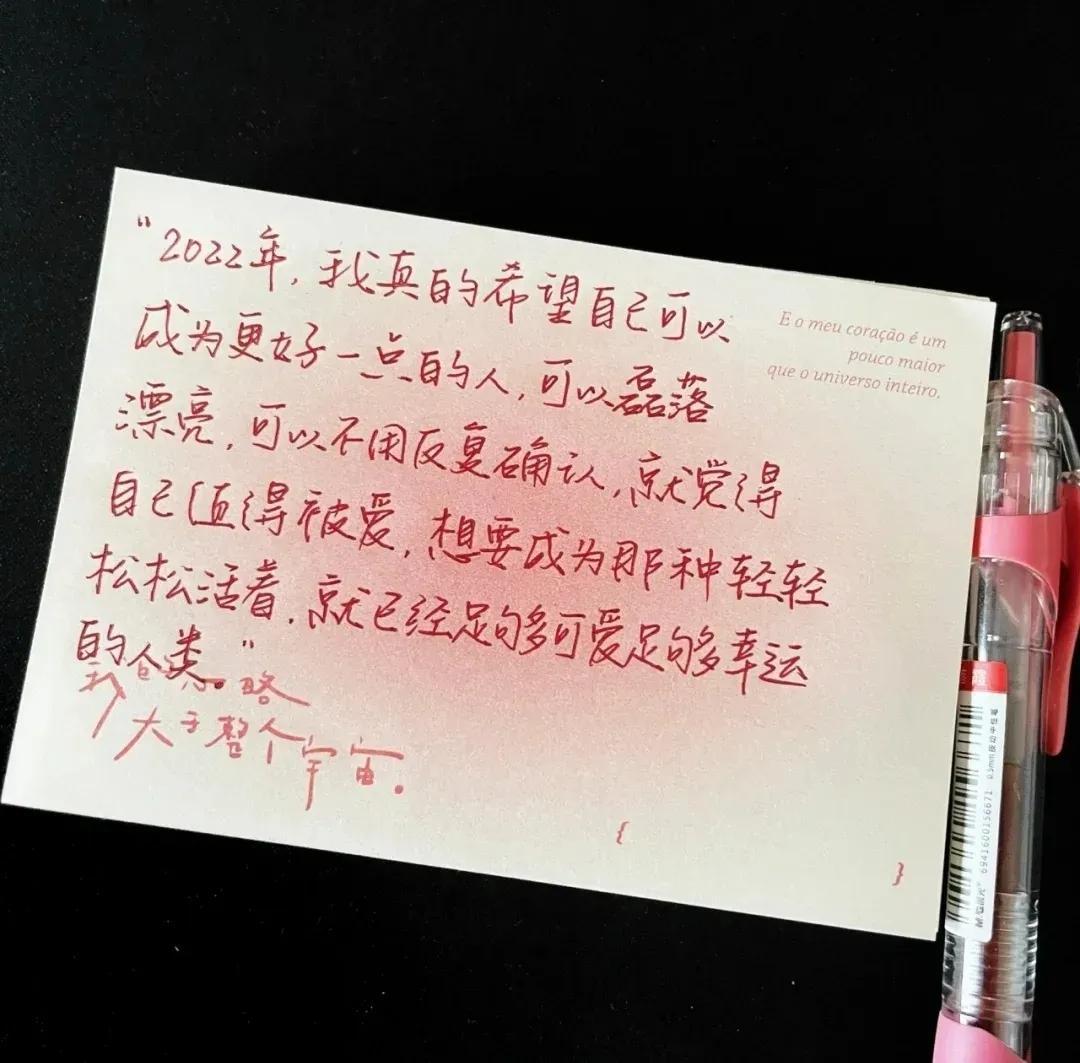 “2022年，我真的希望自己可以
成为更好一点的人，可以磊落
漂亮，可以不用反复确认，就觉得
自己值得被爱，想要成为那种轻轻
松松活着，就已经足够多可爱足够多幸运
的人类。”
我的心略
大于整个宇宙。
E o meu coração é um
pouco maior
que o universo inteiro.
{
}
0.5mm
6941600156671
M&G晨光